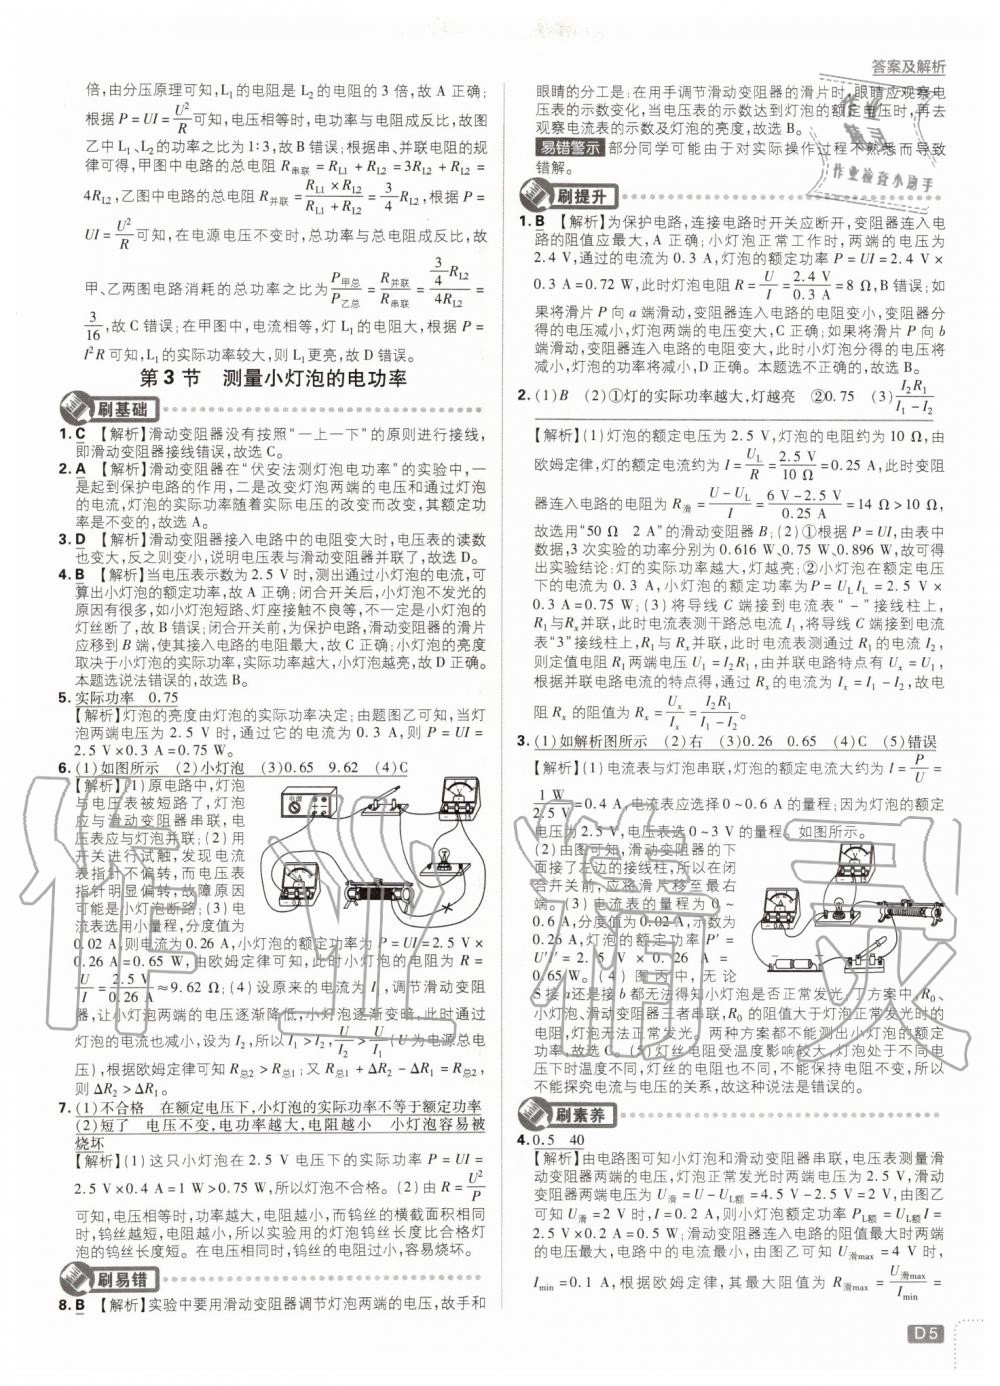 答案及解析
倍,由分压原理可知,L₁的电阻是 L₂的电阻的 3 倍,故 A 正确;
根据 P = UI = U²/R 可知,电压相等时,电功率与电阻成反比,故图
乙中 L₁、L₂的功率之比为 1∶3,故 B 错误;根据串、并联电阻的规
律可得,甲图中电路的总电阻 R串联 = RL1 + RL2 = 3RL2 + RL2 =
4RL2,乙图中电路的总电阻 R并联 = (RL1 × RL2)/(RL1 + RL2) = 3/4 RL2,根据 P =
UI = U²/R 可知,在电源电压不变时,总功率与总电阻成反比,故
甲、乙两图电路消耗的总功率之比为 P甲总/P乙总 = R并联/R串联 = (3/4 RL2)/(4RL2) =
3/16,故 C 错误;在甲图中,电流相等,灯 L₁的电阻大,根据 P =
I²R 可知,L₁的实际功率较大,则 L₁更亮,故 D 错误。
第 3 节 测量小灯泡的电功率
刷基础
1. C 【解析】滑动变阻器没有按照“一上一下”的原则进行接线,
即滑动变阻器接线错误,故选 C。
2. A 【解析】滑动变阻器在“伏安法测灯泡电功率”的实验中,一
是起到保护电路的作用,二是改变灯泡两端的电压和通过灯泡
的电流,灯泡的实际功率随着实际电压的改变而改变,其额定功
率是不变的,故选 A。
3. D 【解析】滑动变阻器接入电路中的电阻变大时,电压表的读数
也变大,反之则变小,说明电压表与滑动变阻器并联了,故选 D。
4. B 【解析】当电压表示数为 2.5 V 时,测出通过小灯泡的电流,可
算出小灯泡的额定功率,故 A 正确;闭合开关后,小灯泡不发光的
原因有很多,如小灯泡短路、灯座接触不良等,不一定是小灯泡的
灯丝断了,故 B 错误;闭合开关前,为保护电路,滑动变阻器的滑片
应移到 B 端,使其接入电路的电阻最大,故 C 正确;小灯泡的亮度
取决于小灯泡的实际功率,实际功率越大,小灯泡越亮,故 D 正确。
本题选说法错误的,故选 B。
5. 实际功率 0.75
【解析】灯泡的亮度由灯泡的实际功率决定;由题图乙可知,当灯
泡两端电压为 2.5 V 时,通过它的电流为 0.3 A,则 P = UI =
2.5 V×0.3 A = 0.75 W。
6. (1)如图所示 (2)小灯泡 (3)0.65 9.62 (4)C
【解析】(1)原电路中,灯泡
与电压表被短路了,灯泡
应与滑动变阻器串联,电
压表应与灯泡并联;(2)用
开关进行试触,发现电流
表指针不偏转,而电压表
指针明显偏转,故障原因
可能是小灯泡断路;(3)电
流表选用小量程,分度值为
0.02 A,则电流为 0.26 A,小灯泡的额定功率为 P = UI = 2.5 V×
0.26 A = 0.65 W,由欧姆定律可知,此时小灯泡的电阻为 R =
U/I = 2.5 V/0.26 A ≈ 9.62 Ω;(4)设原来的电流为 I₁,调节滑动变阻
器,让小灯泡两端的电压逐渐降低,小灯泡逐渐变暗,此时通过
灯泡的电流也减小,设为 I₂,所以 I₁ > I₂,U/I₂ > U/I₁(U 为电源总电
压),根据欧姆定律可知 R总2 > R总1;又 R总1 + ΔR₂ − ΔR₁ = R总2,
则 ΔR₂ > ΔR₁。
7. (1)不合格 在额定电压下,小灯泡的实际功率不等于额定功率
(2)短了 电压不变,电功率越大,电阻越小 小灯泡容易被
烧坏
【解析】(1)这只小灯泡在 2.5 V 电压下的实际功率 P = UI =
2.5 V×0.4 A = 1 W > 0.75 W,所以灯泡不合格。(2)由 R = U²/P
可知,电压相等时,功率越大,电阻越小,而钨丝的横截面积相同
时,钨丝越短,电阻越小,所以实验用的灯泡钨丝长度比合格灯
泡的钨丝长度短。在电压相同时,钨丝的电阻小,容易烧坏。
刷易错
8. B 【解析】实验中要用滑动变阻器调节灯泡两端的电压,故手和
眼睛的分工是:在用手调节滑动变阻器的滑片时,眼睛应观察电
压表的示数变化,当电压表的示数达到灯泡的额定电压时,再去
观察电流表的示数及灯泡的亮度,故选 B。
易错警示 部分同学可能由于对实际操作过程不熟悉而导致
错解。
刷提升
1. B 【解析】为保护电路,连接电路时开关应断开,变阻器连入电
路的阻值应最大,A 正确;小灯泡正常工作时,两端的电压为
2.4 V,通过的电流为 0.3 A,灯泡的额定功率 P = UI = 2.4 V×
0.3 A = 0.72 W,此时灯泡电阻 R = U/I = 2.4 V/0.3 A = 8 Ω,B 错误;如
果将滑片 P 向 a 端滑动,变阻器连入电路的电阻变小,变阻器分
得的电压减小,灯泡两端的电压变大,C 正确;如果将滑片 P 向 b
端滑动,变阻器连入电路的电阻变大,此时小灯泡分得的电压将
减小,灯泡的实际功率将减小,D 正确。本题选不正确的,故选 B。
2. (1)B (2)①灯的实际功率越大,灯越亮 ②0.75 (3)I₂R₁/(I₁ − I₂)
【解析】(1)灯泡的额定电压为 2.5 V,灯泡的电阻约为 10 Ω,由
欧姆定律,灯的额定电流约为 I = UL/R = 2.5 V/10 Ω = 0.25 A,此时变阻
器连入电路的电阻为 R滑 = (U − UL)/I = (6 V − 2.5 V)/0.25 A = 14 Ω > 10 Ω,
故选用“50 Ω 2 A”的滑动变阻器 B;(2)①根据 P = UI,由表中
数据,3 次实验的功率分别为 0.616 W、0.75 W、0.896 W,故可得
出实验结论:灯的实际功率越大,灯越亮;②小灯泡在额定电压
下的电流为 0.3 A,小灯泡的额定功率为 P = ULIL = 2.5 V×
0.3 A = 0.75 W;(3)将导线 C 端接到电流表“−”接线柱上,
R₁与Rₓ并联,此时电流表测干路总电流 I₁,将导线 C 端接到电流
表“3”接线柱上,R₁与 Rₓ并联,此时电流表测通过 R₁的电流 I₂,
则定值电阻 R₁两端电压 U₁ = I₂R₁,由并联电路特点有 Uₓ = U₁,
根据并联电路电流的特点得,通过 Rₓ的电流为 Iₓ = I₁ − I₂,故电
阻 Rₓ的阻值为 Rₓ = Uₓ/Iₓ = I₂R₁/(I₁ − I₂)。
3. (1)如解析图所示 (2)右 (3)0.26 0.65 (4)C (5)错误
【解析】(1)电流表与灯泡串联,灯泡的额定电流大约为 I = P/U =
1 W/2.5 V = 0.4 A,电流表应选择 0~0.6 A 的量程;因为灯泡的额定
电压为 2.5 V,电压表选 0~3 V 的量程。如图所示。
(2)由图可知,滑动变阻器的下
面接了左边的接线柱,所以在闭
合开关前,应将滑片移至最右
端。(3)电流表的量程为 0~
0.6 A,分度值为 0.02 A,示数为
0.26 A,灯泡的额定功率 P' =
U'I' = 2.5 V × 0.26 A =
0.65 W。(4)图丙中,无论
S 接 a 还是接 b 都无法得知小灯泡是否正常发光,丁方案中,R₀、
小灯泡、滑动变阻器三者串联,R₀的阻值大于灯泡正常发光时的
电阻,灯泡无法正常发光。两种方案都不能测出小灯泡的额定
功率,故选 C。(5)灯丝电阻受温度影响较大,灯泡处于不同电
压下时温度不同,灯丝的电阻也不同,不能保持电阻不变,所以
不能探究电流与电压的关系,故这种说法是错误的。
刷素养
4. 0.5 40
【解析】由电路图可知小灯泡和滑动变阻器串联,电压表测量滑
动变阻器两端的电压,灯泡正常发光时两端电压为 2.5 V,滑动
变阻器两端电压为 U滑 = U − UL额 = 4.5 V − 2.5 V = 2 V,由图乙
可知 U滑 = 2 V 时,I = 0.2 A,则小灯泡额定功率 PL额 = UL额I =
2.5 V×0.2 A = 0.5 W;滑动变阻器连入电路的阻值最大时两端
的电压最大,电路中的电流最小,由图乙可知 U滑max = 4 V 时,
Imin = 0.1 A,根据欧姆定律,其最大阻值为 R滑max = U滑max/Imin =
D5
作业精灵
作业检查小助手